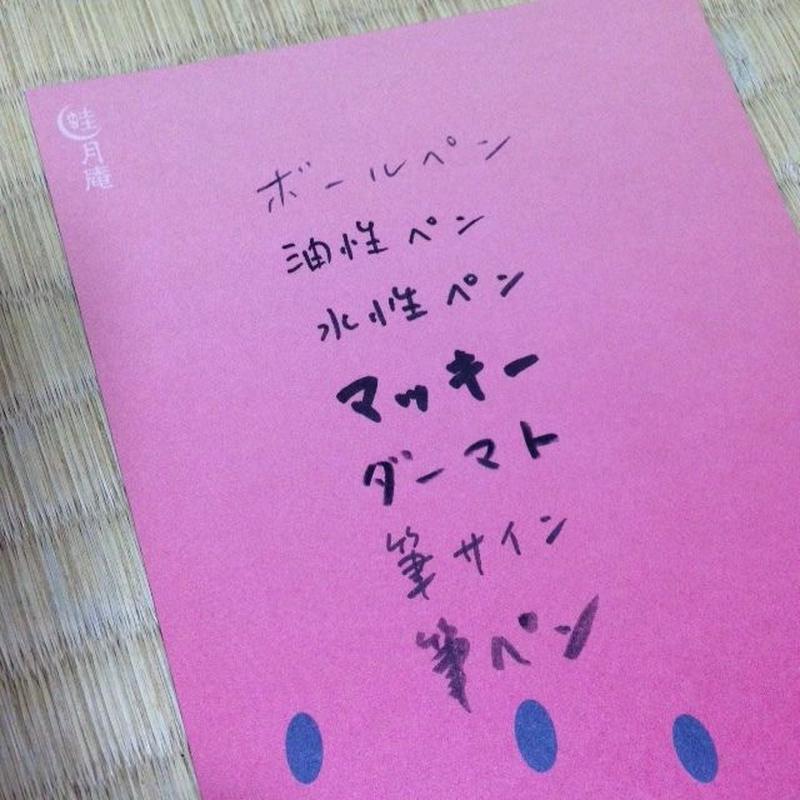 蛙月庵
ボールペン
油性ペン
水性ペン
マッキー
ダーマト
筆サイン
筆ペン